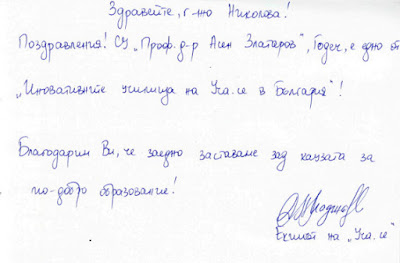 Здравейте, г-жо Николова!
Поздравления! СУ „Проф. д-р Асен Златаров", Годеч, е едно от
„Иновативните училища на Уча.се в България"!
Благодарим Ви, че заедно заставаме зад каузата за
по-добро образование!
Екипът на „Уча.се"